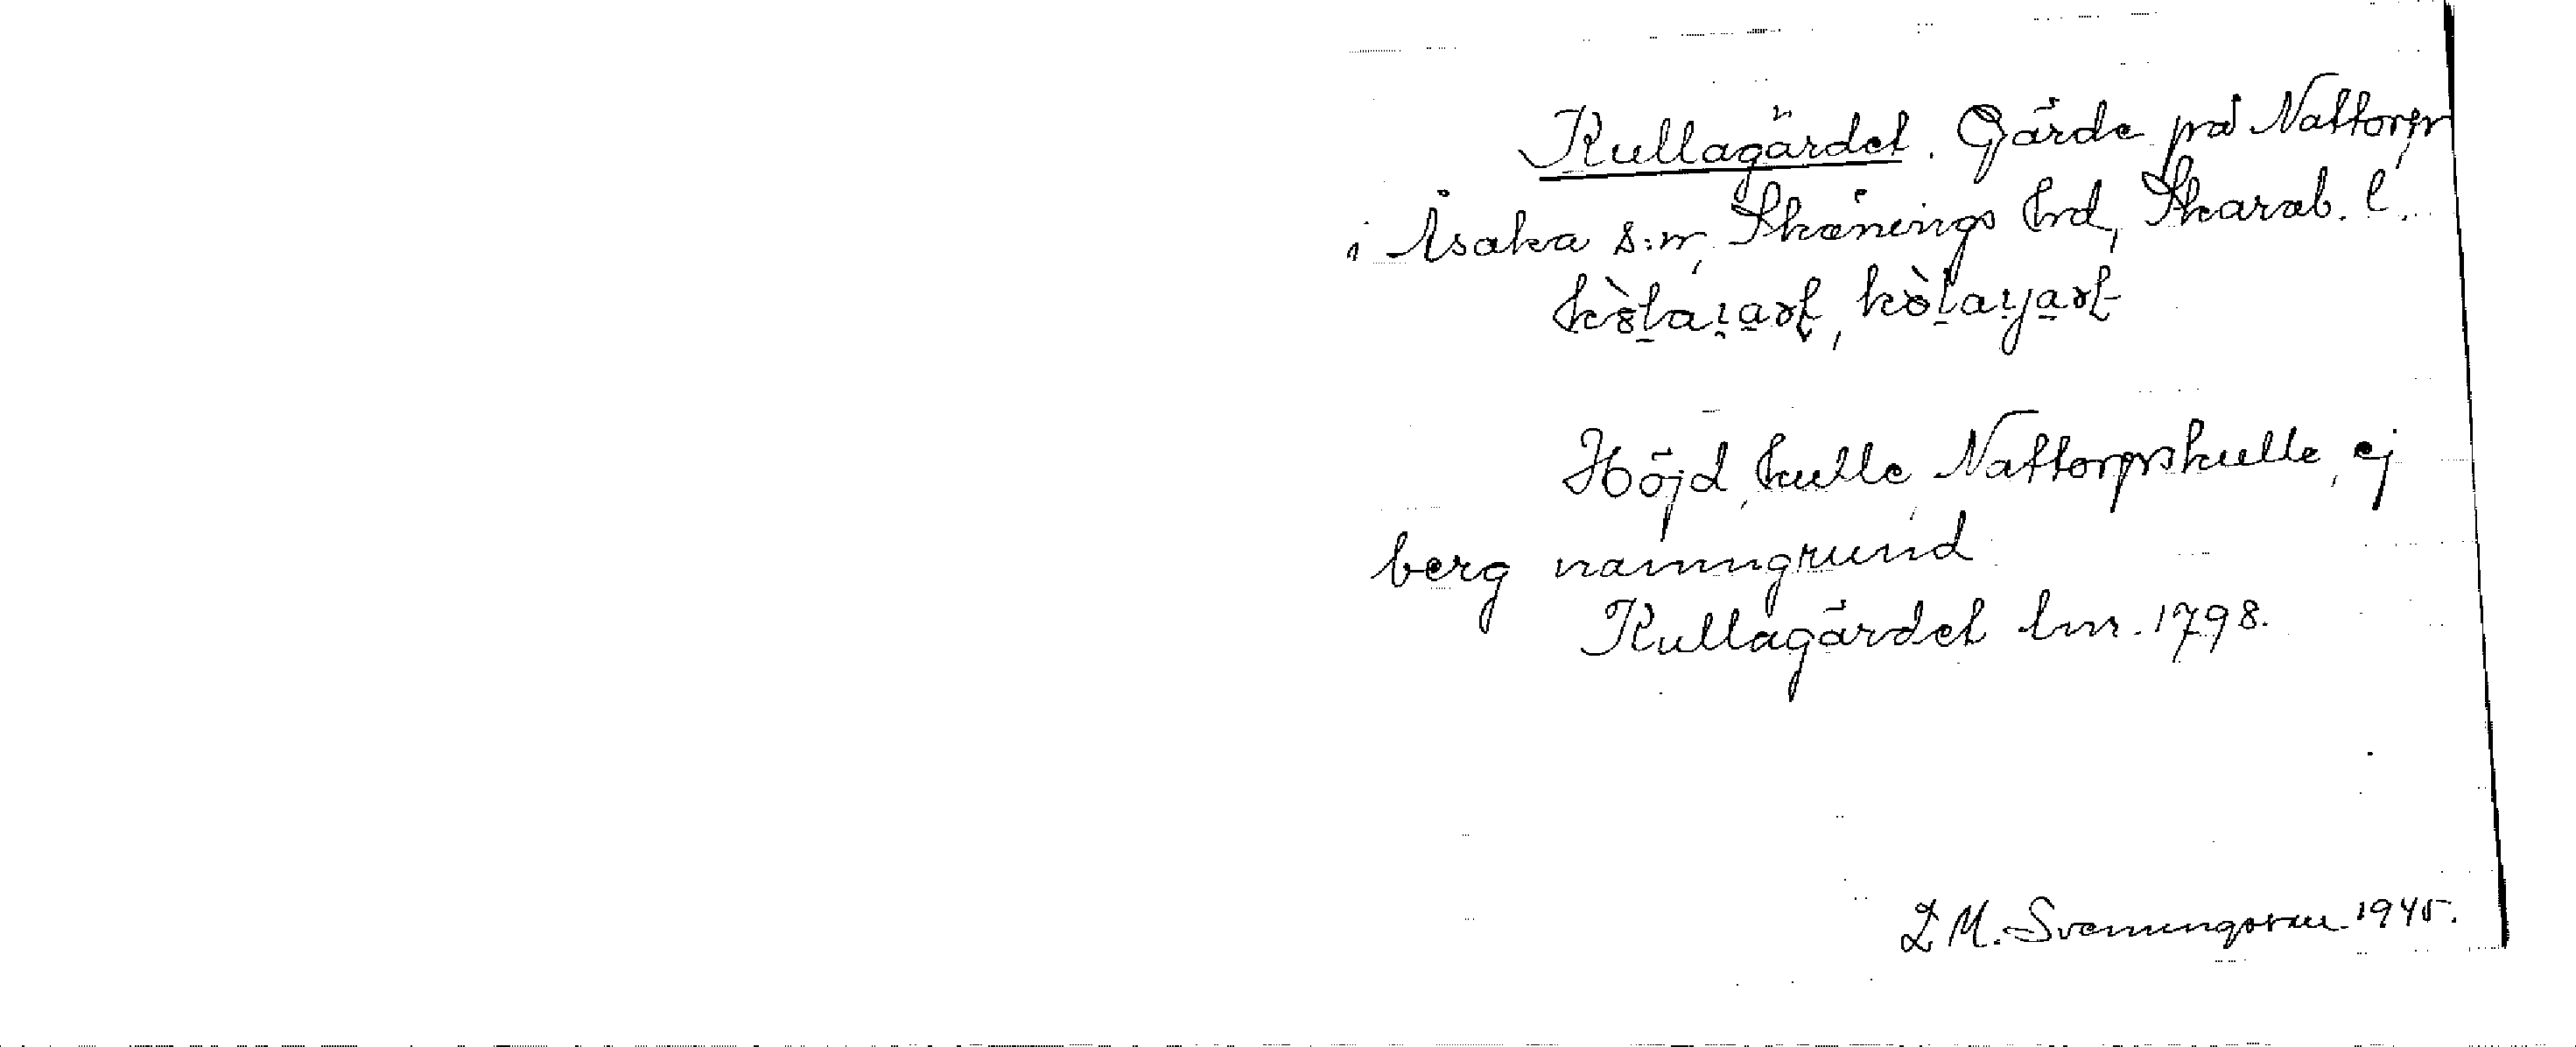 Kullagärdet. Gärde på Nattorp
i Åsaka s:n, Skånings hrd, Skarab. l.
Höjd, kulle, Nattorpskulle, ej
berg namngrund
Kullagärdet lm. 1798.
L M. Svenungsson 1945.